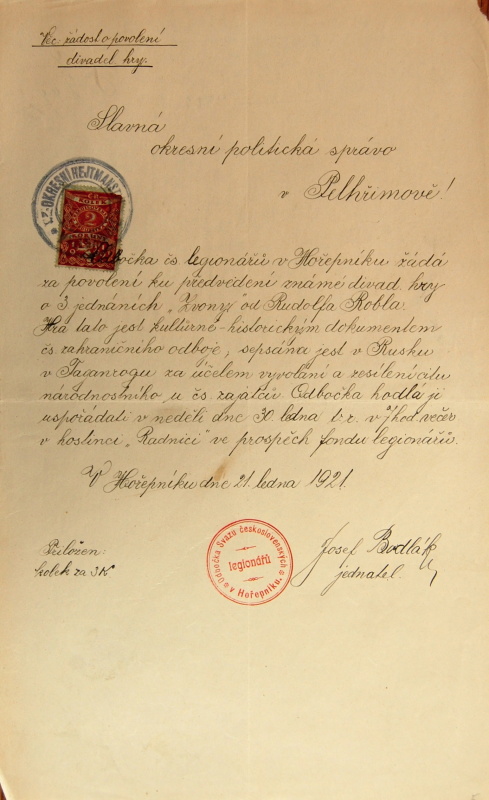 Věc: žádost o povolení
divadel. hry.
Slavná
okresní politická správo
v Pelhřimově!
* Čs. OKRESNÍ HEJTMANST
KOLEK
2
Odbočka čs. legionářů v Hořepníku žádá
za povolení ku předvedení známé divad. hry
o 3 jednáních „Zvony" od Rudolfa Kobla.
Hra tato jest kulturně-historickým dokumentem
čs. zahraničního odboje, sepsána jest v Rusku
v Taganrogu za účelem vyvolání a zesílení citu
národnostního u čs. zajatců. Odbočka hodlá ji
uspořádati v neděli dne 30. ledna t. r. v hod. večer
v hostinci „Radnici" ve prospěch fondu legionářů.
V Hořepníku dne 21. ledna 1921.
Přiložen:
kolek za 3K
Odbočka Svazu československých
legionářů
v Hořepníku.
Josef Bodlák
jednatel.